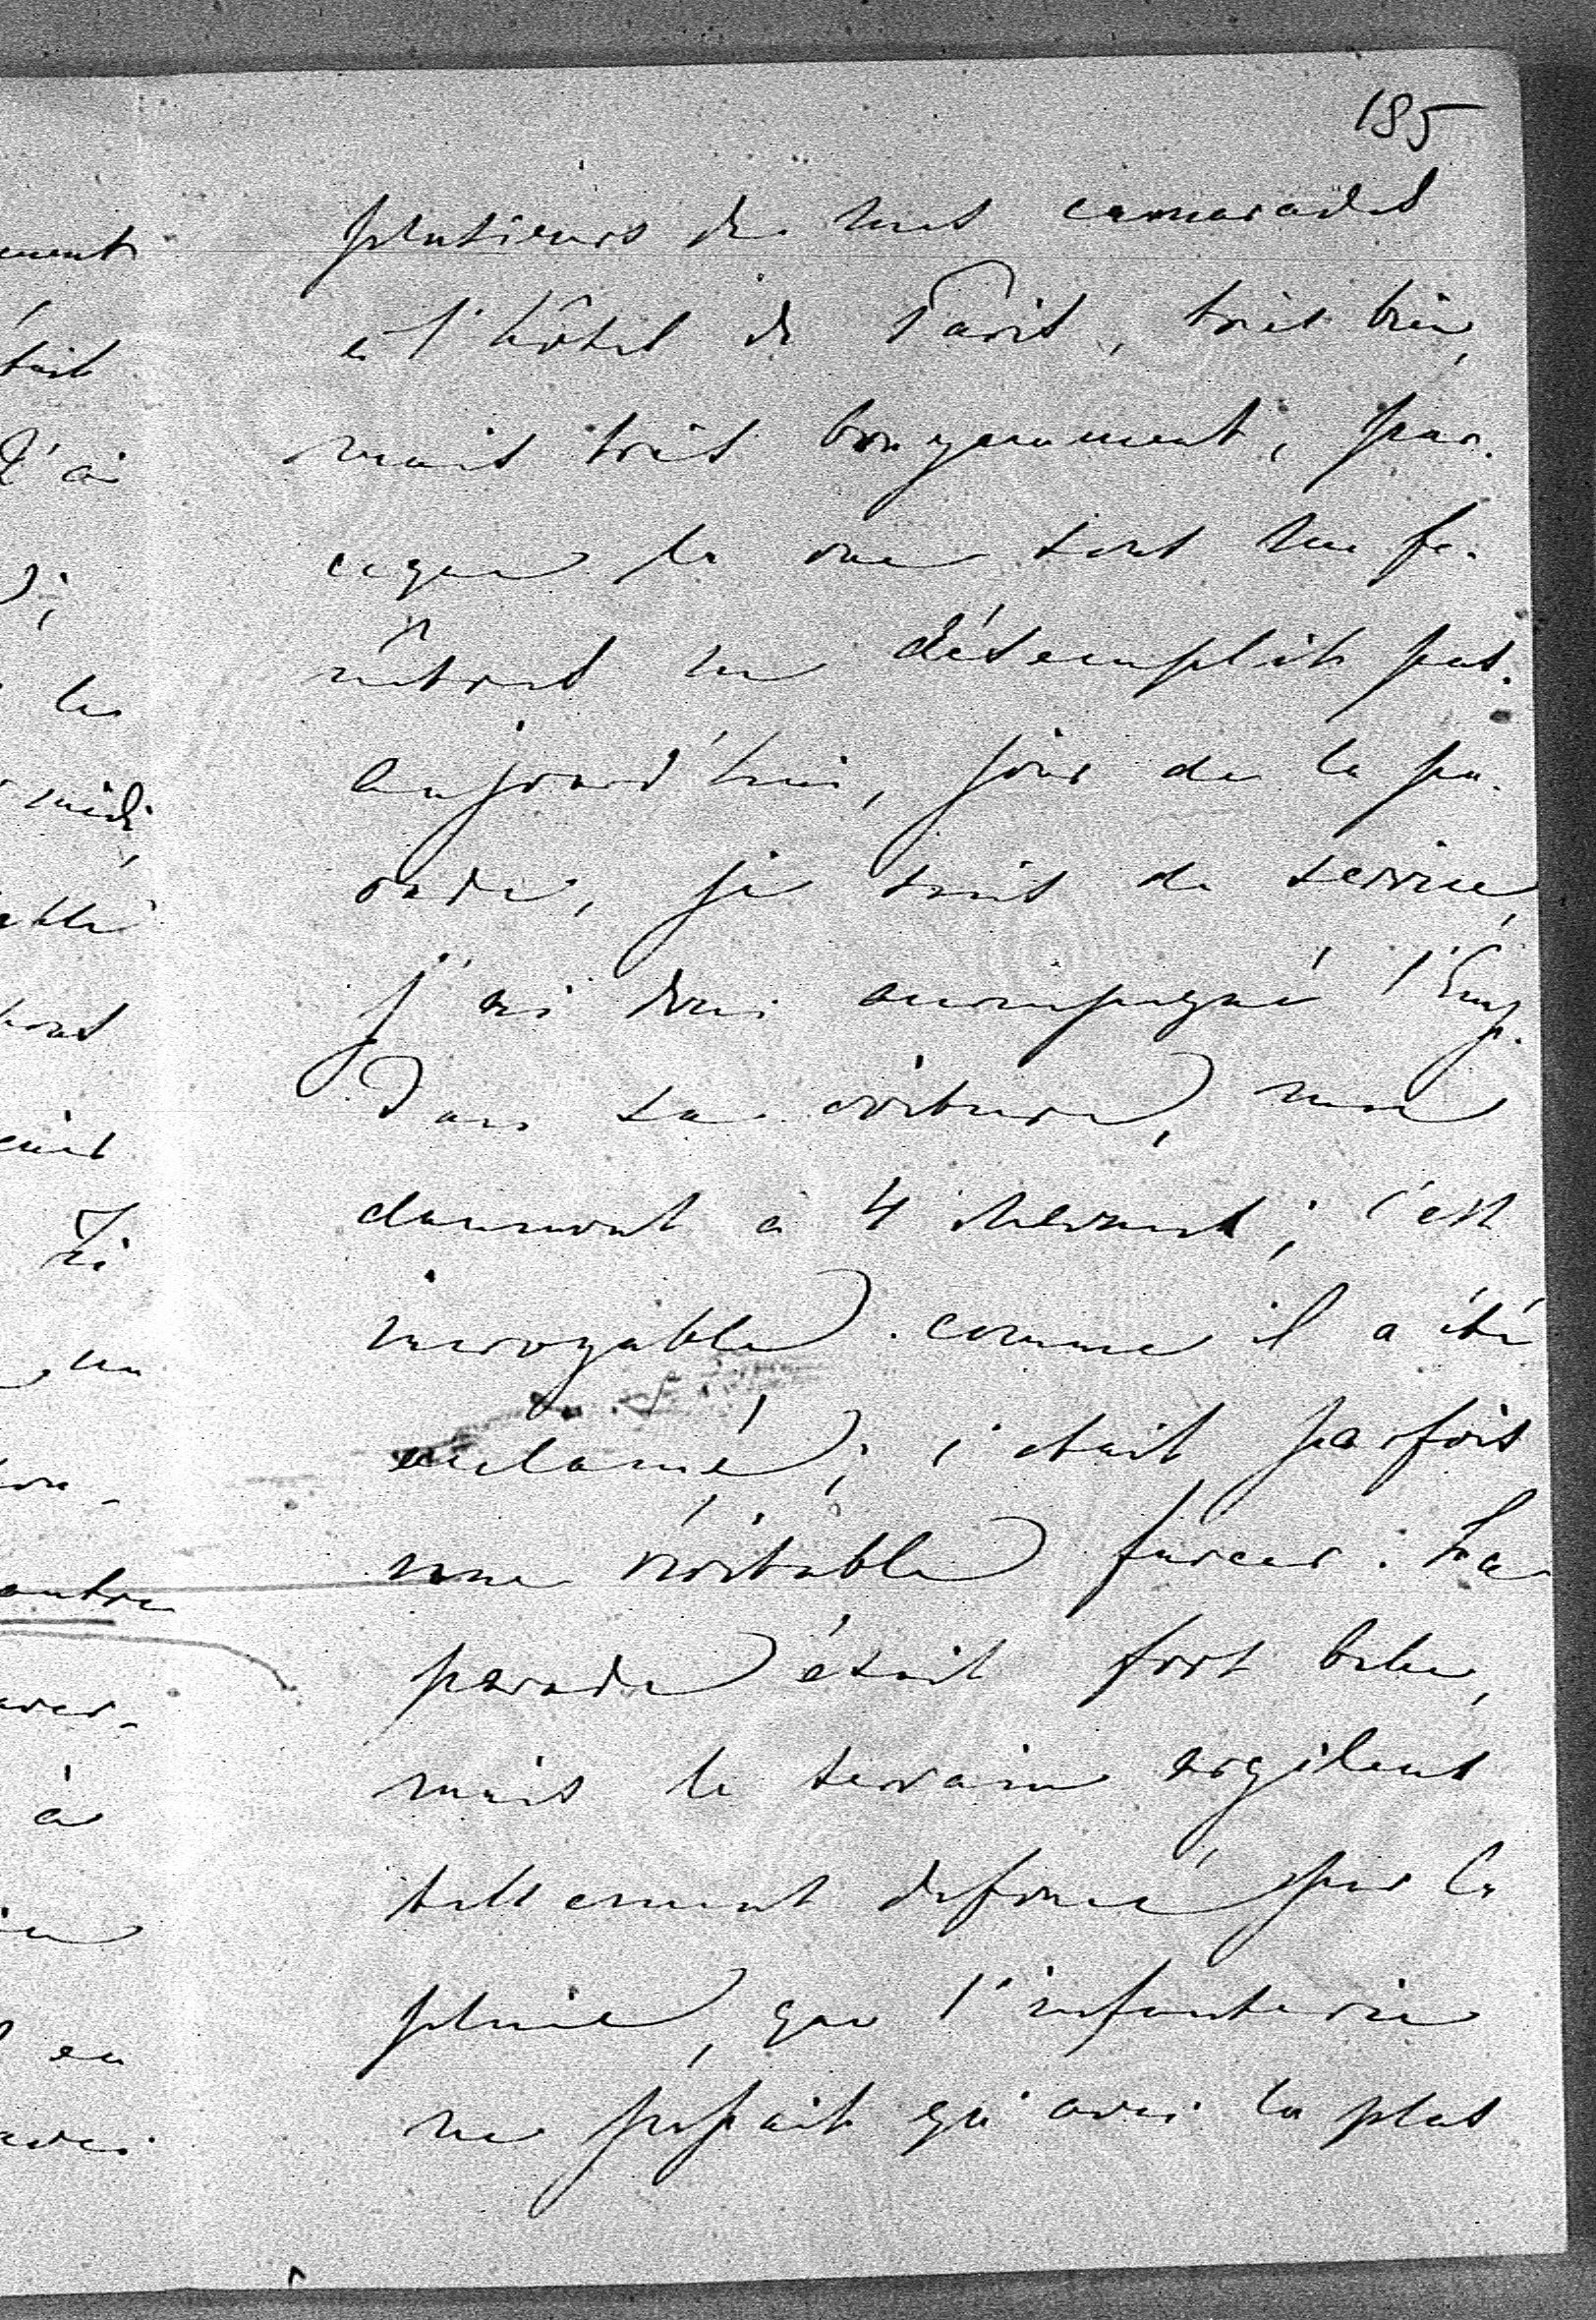 185
plusieurs de mes camarades
à l'hôtel de Paris, très bien,
mais très bruyamment, par-
ceque la rue sous nos fe-
nêtres ne désemplit pas.
Aujourd'hui, jour de la pa-
rade, je suis de service,
j'ai donc accompagné l'Emp.
dans sa voiture, une
daumont à 4 chevaux; c'est
incroyable comme il a été
acclamé; c'était parfois
une véritable fureur. La
parade était fort belle,
mais le terrain argileux
tellement défoncé par la
pluie, que l'infanterie
ne passait qu'avec la plus
ment
tait
J'ai
les
midi
un
autre
à
en
avec